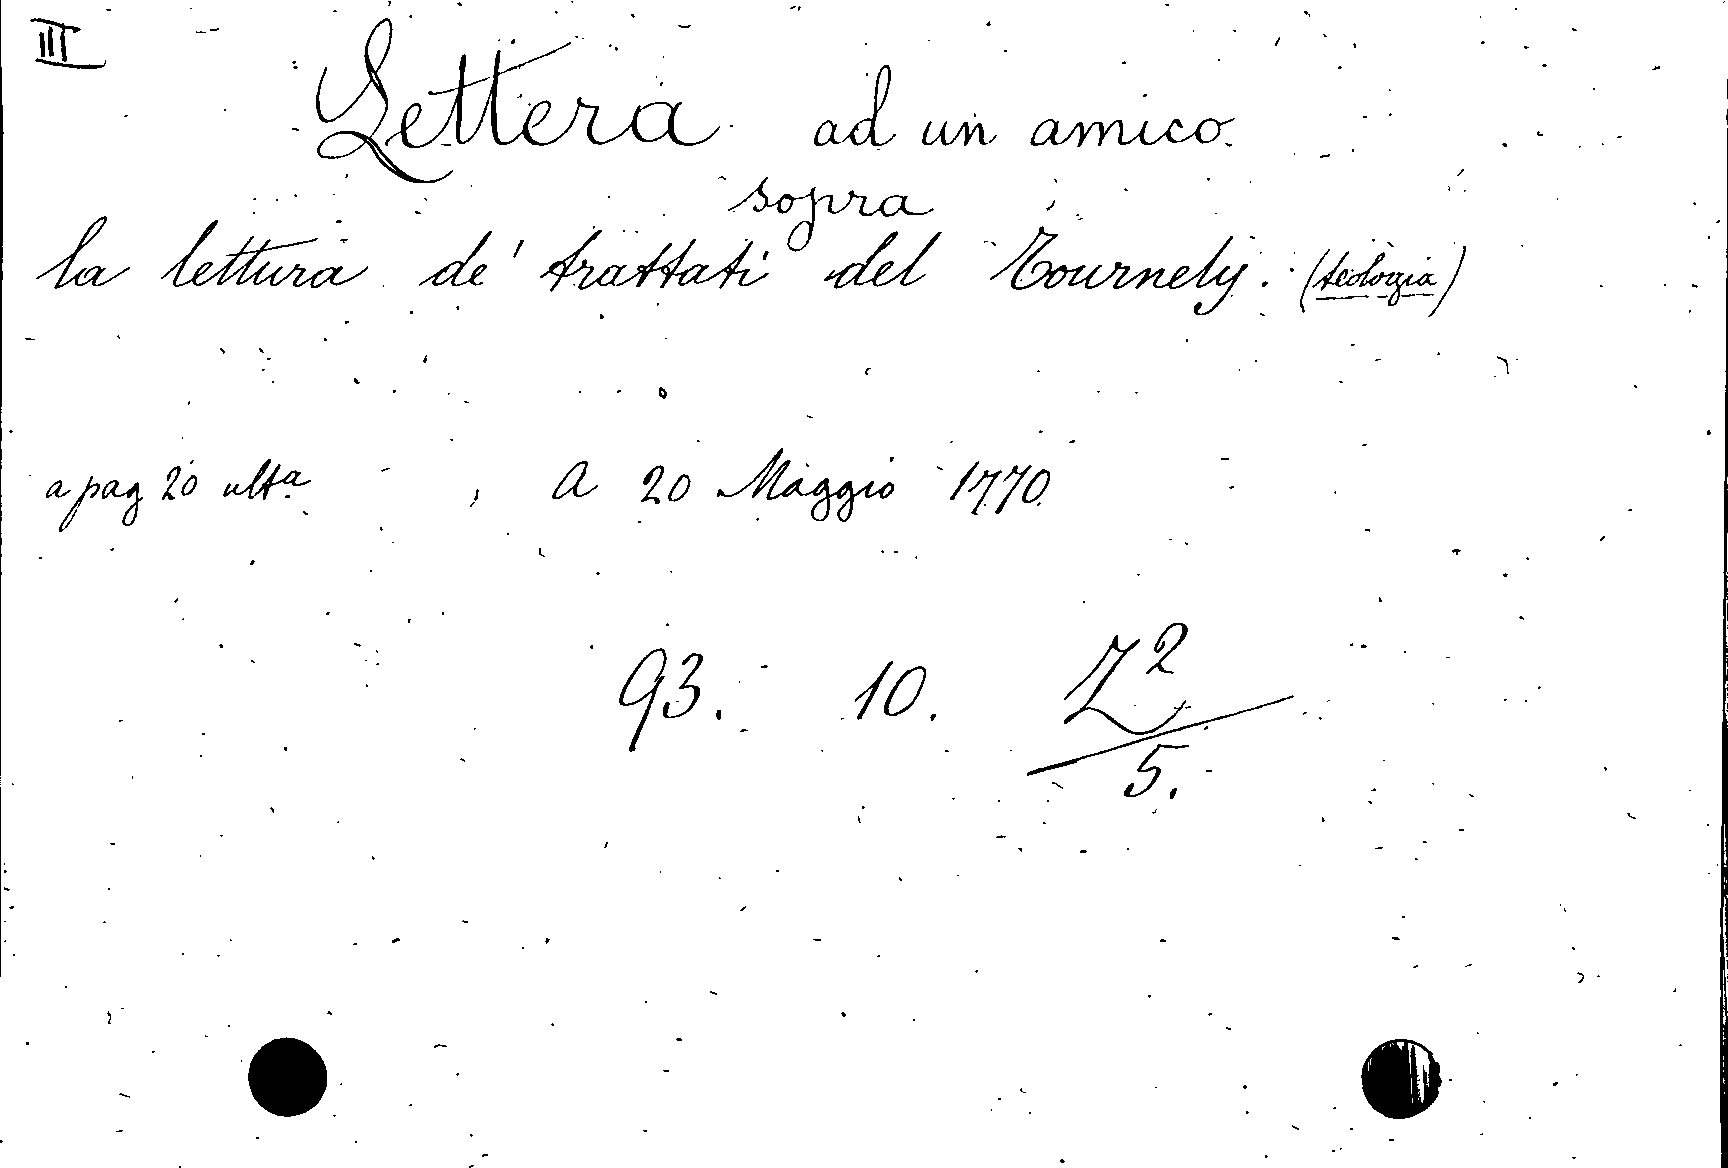 III
Lettera ad un amico
sopra
la lettura de' trattati del Tournely. (teologia)
a pag 20 ulta A 20 Maggio 1770
93. 10. Z2
5.